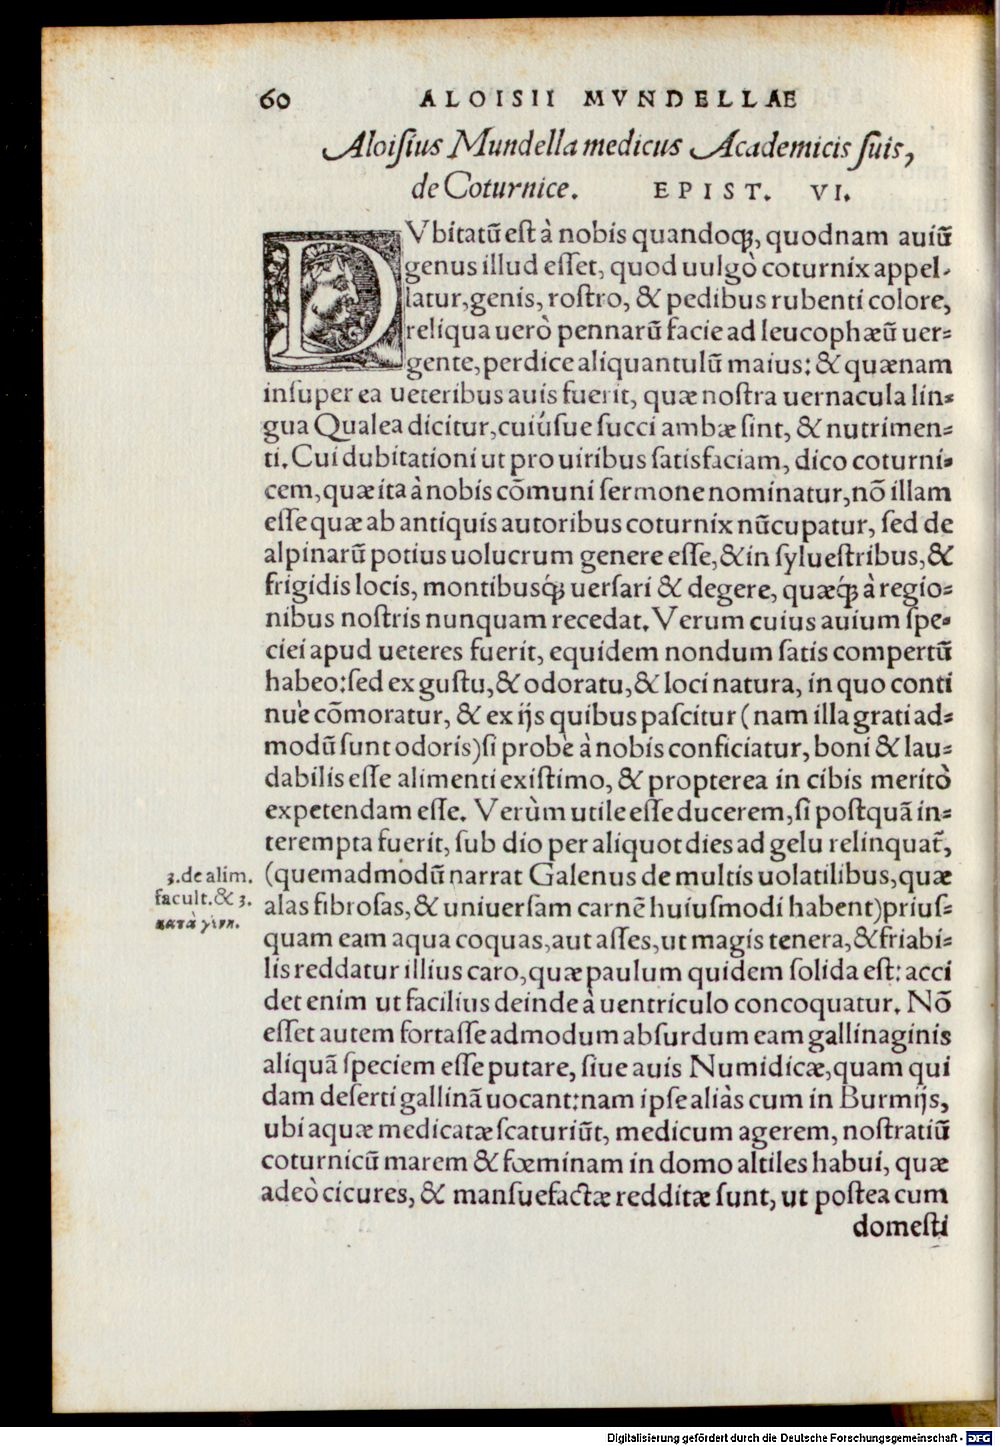 60 ALOISII MVNDELLAE
Aloiſius Mundella medicus Academicis ſuis,
de Coturnice. EPIST. VI.
DVbitatũ eſt à nobis quandoꝗ́;, quodnam auiũ
genus illud eſſet, quod uulgò coturnix appel-
latur, genis, roſtro, & pedibus rubenti colore,
reliqua uerò pennarũ facie ad leucophæũ uer=
gente, perdice aliquantulũ maius: & quænam
inſuper ea ueteribus auis fuerit, quæ noſtra uernacula lin=
gua Qualea dicitur, cuiúſue ſucci ambæ ſint, & nutrimen=
ti. Cui dubitationi ut pro uiribus ſatisfaciam, dico coturni=
cem, quæ ita à nobis cõmuni ſermone nominatur, nõ illam
eſſe quæ ab antiquis autoribus coturnix nũcupatur, ſed de
alpinarũ potius uolucrum genere eſſe, & in ſylueſtribus, &
frigidis locis, montibusꝗ́; uerſari & degere, quæꝗ́; à regio=
nibus noſtris nunquam recedat. Verum cuius auium ſpe=
ciei apud ueteres fuerit, equidem nondum ſatis compertũ
habeo: ſed ex guſtu, & odoratu, & loci natura, in quo conti
nuè cõmoratur, & ex ijs quibus paſcitur (nam illa grati ad=
modũ ſunt odoris) ſi probè à nobis conficiatur, boni & lau=
dabilis eſſe alimenti exiſtimo, & propterea in cibis meritò
expetendam eſſe. Verùm utile eſſe ducerem, ſi poſtquã in=
terempta fuerit, ſub dio per aliquot dies ad gelu relinquat̃,
(quemadmodũ narrat Galenus de multis uolatilibus, quæ
alas fibroſas, & uniuerſam carnẽ huiuſmodi habent) priuſ=
quam eam aqua coquas, aut aſſes, ut magis tenera, & friabi=
lis reddatur illius caro, quæ paulum quidem ſolida eſt: acci
det enim ut facilius deinde à uentriculo concoquatur. Nõ
eſſet autem fortaſſe admodum abſurdum eam gallinaginis
aliquã ſpeciem eſſe putare, ſiue auis Numidicæ, quam qui
dam deſerti gallinã uocant: nam ipſe aliàs cum in Burmijs,
ubi aquæ medicatæ ſcaturiũt, medicum agerem, noſtratiũ
coturnicũ marem & fœminam in domo altiles habui, quæ
adeò cicures, & manſuefactæ redditæ ſunt, ut poſtea cum
domeſti
3. de alim.
facult. & 3.
κατὰ γένη.
Digitalisierung gefördert durch die Deutsche Forschungsgemeinschaft - DFG